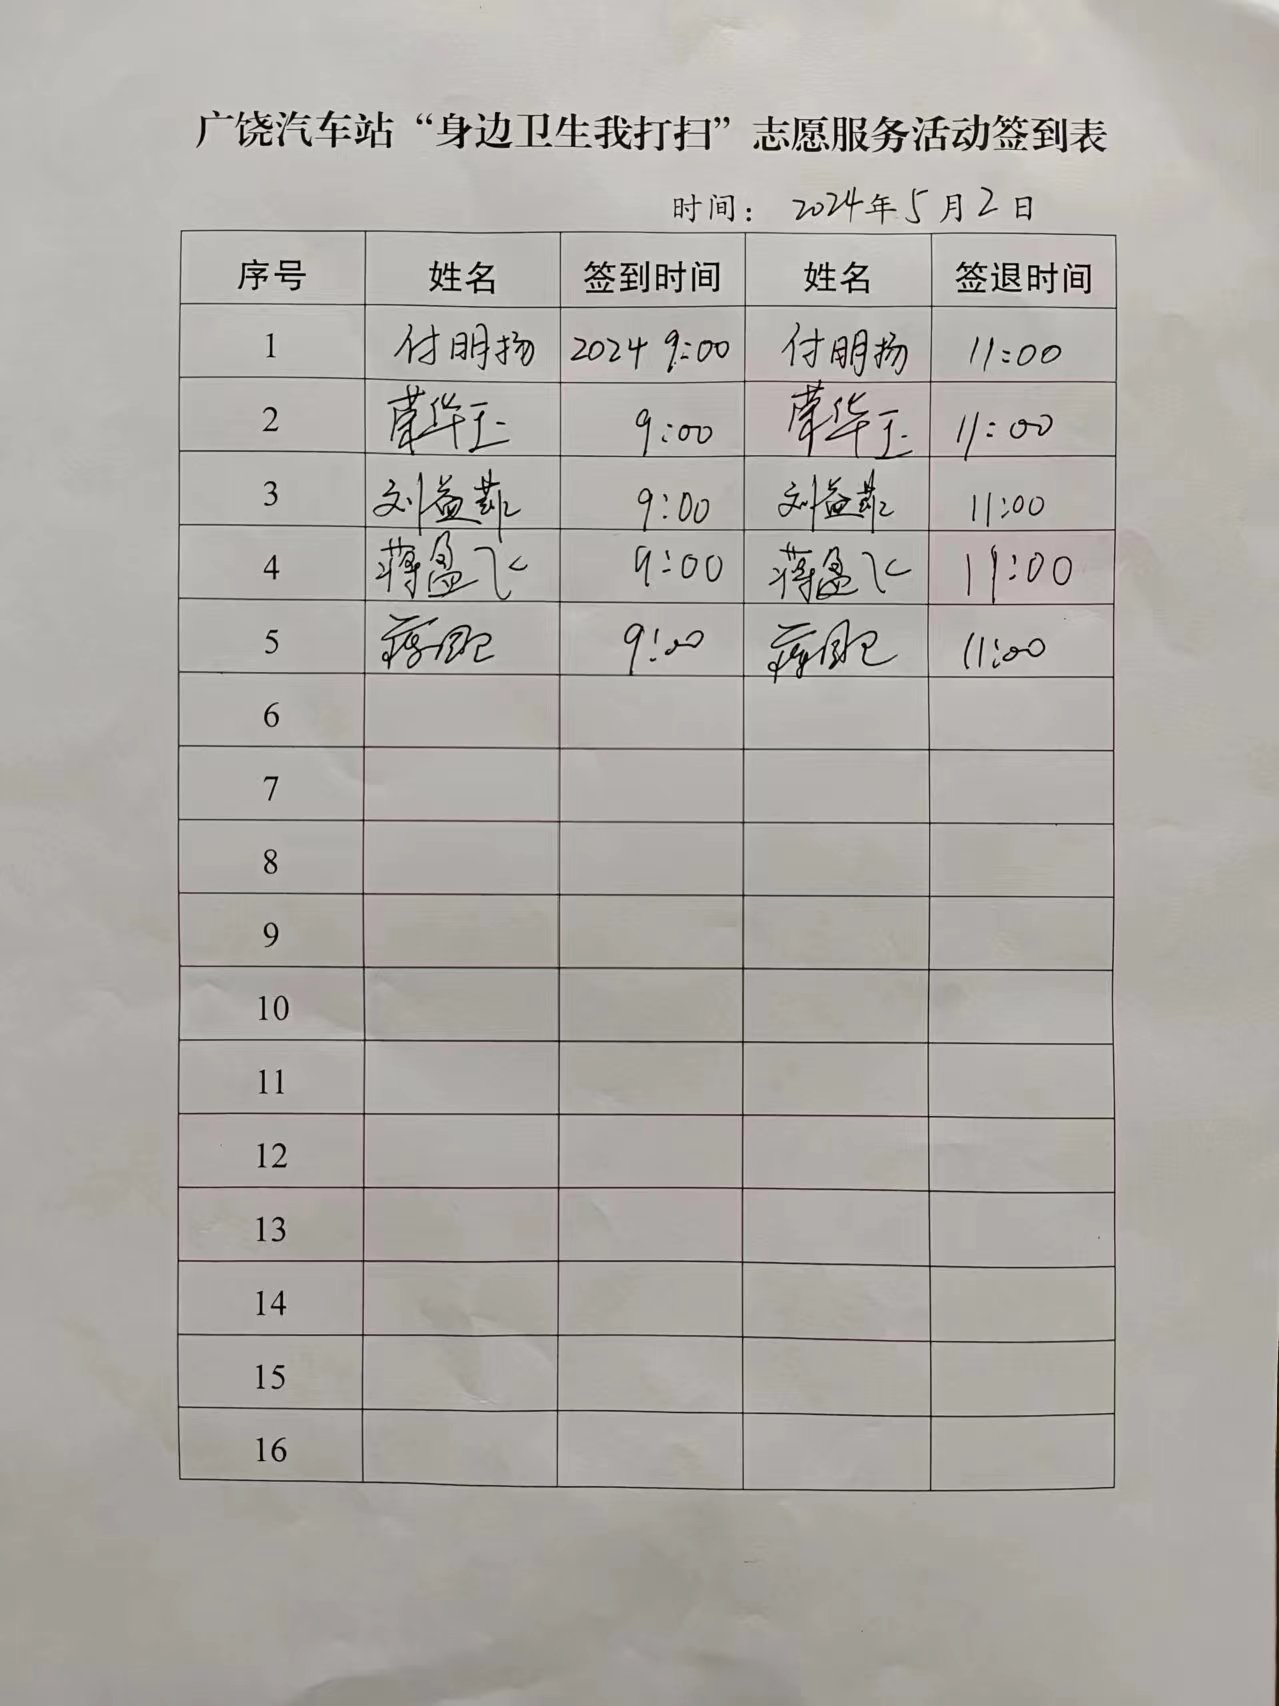 广饶汽车站“身边卫生我打扫”志愿服务活动签到表
时间： 2024年5月2日
序号 姓名 签到时间 姓名 签退时间
1 付明扬 2024 9:00 付明扬 11:00
2 荣华玉 9:00 荣华玉 11:00
3 刘益菲 9:00 刘益菲 11:00
4 蒋盈飞 9:00 蒋盈飞 11:00
5 9:00 11:00
6
7
8
9
10
11
12
13
14
15
16